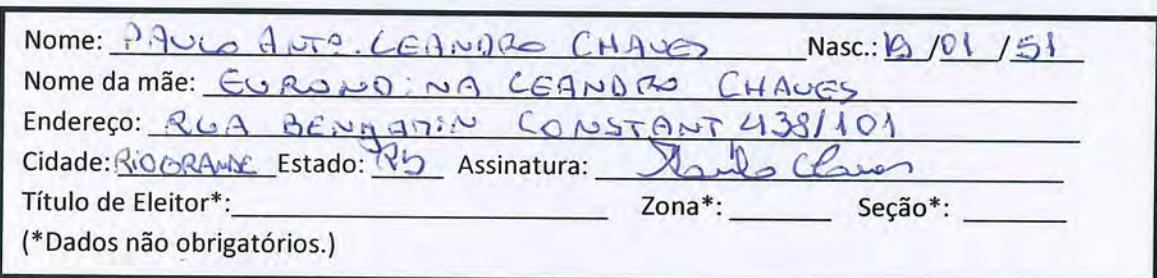 Nome: PAULO ANTº. LEANDRO CHAVES Nasc.: 19/01/51
Nome da mãe: EURONDINA LEANDRO CHAVES
Endereço: RUA BENJAMIN CONSTANT 438/101
Cidade: RIO GRANDE Estado: RS Assinatura: Paulo Chaves
Título de Eleitor*: Zona*: Seção*:
(*Dados não obrigatórios.)